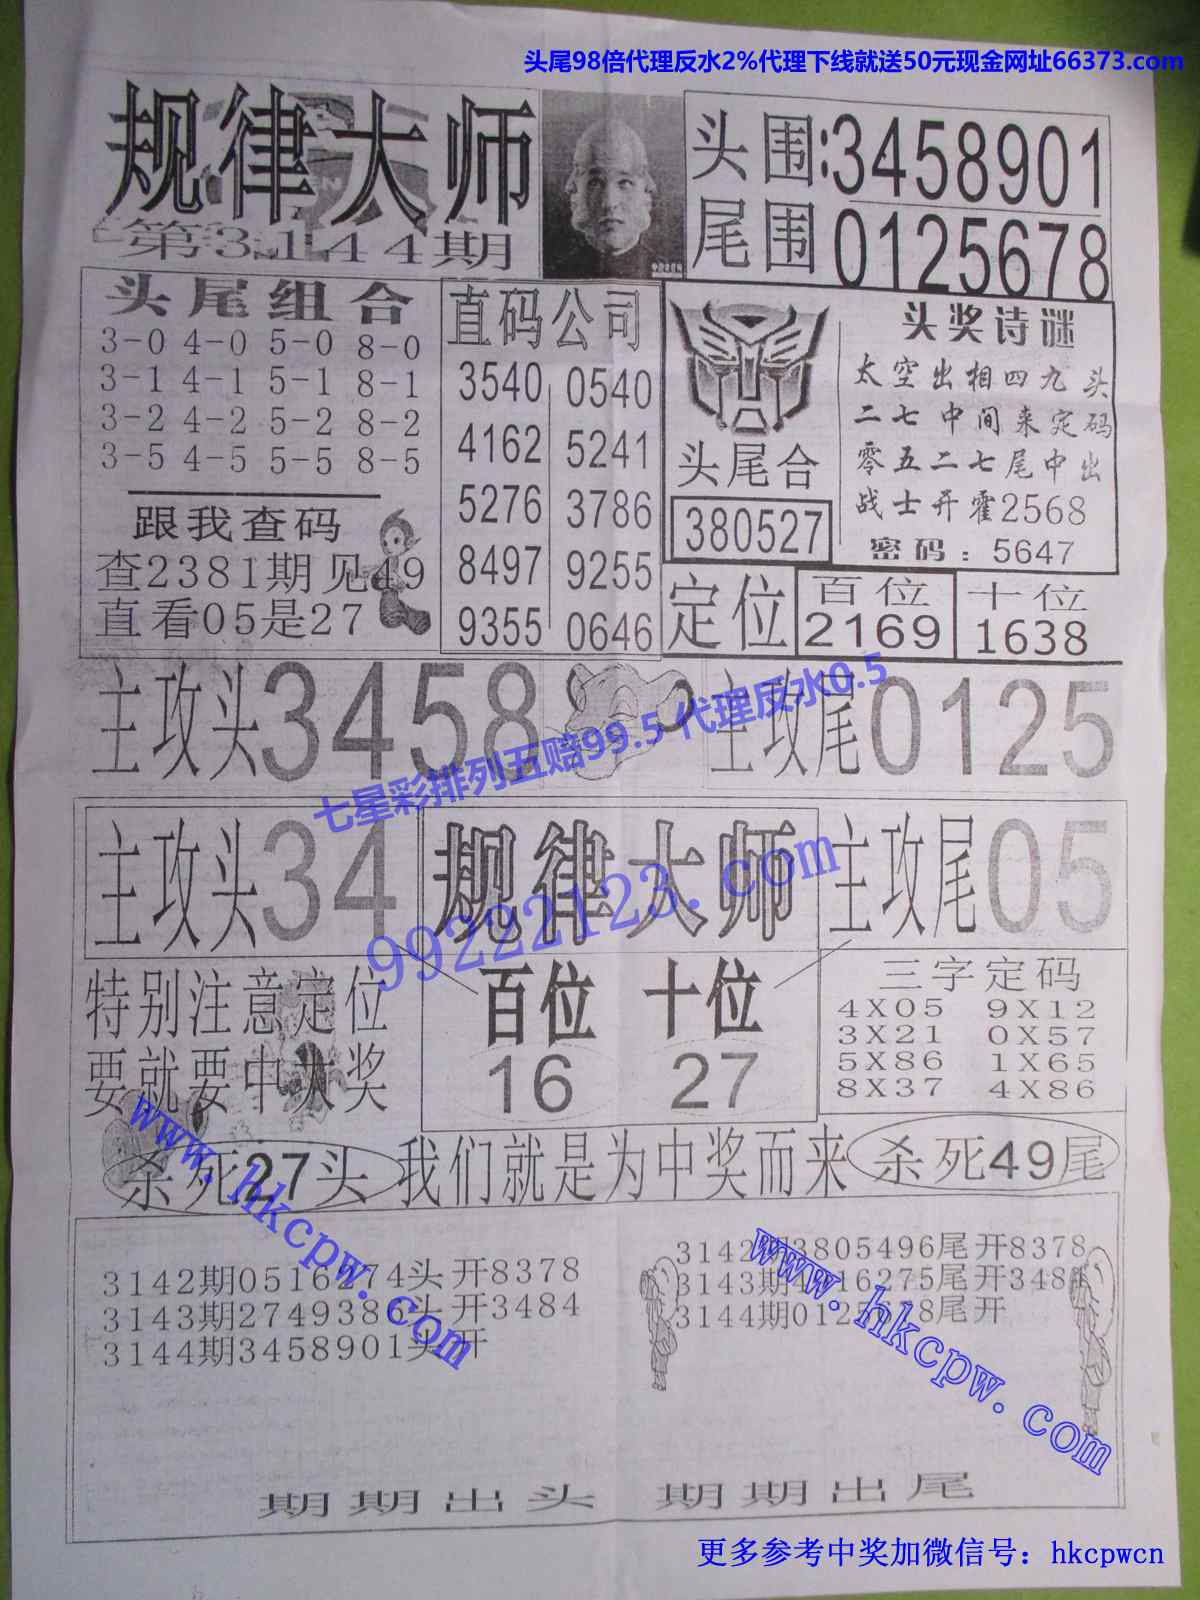 头尾98倍代理反水2%代理下线就送50元现金网址66373.com
规律大师
第3144期
头围:3458901
尾围0125678
头尾组合
3-0 4-0 5-0 8-0
3-1 4-1 5-1 8-1
3-2 4-2 5-2 8-2
3-5 4-5 5-5 8-5
跟我查码
查2381期见49
直看05是27
直码公司
3540 0540
4162 5241
5276 3786
8497 9255
9355 0646
头尾合
380527
头奖诗谜
太空出相四九头
二七中间来定码
零五二七尾中出
战士开霍2568
密码:5647
定位
百位
2169
十位
1638
主攻头3458
主攻尾0125
七星彩排列五赔99.5 代理反水0.5
主攻头34
规律大师
主攻尾05
99222123.com
特别注意定位
要就要中大奖
百位 十位
16 27
三字定码
4X05 9X12
3X21 0X57
5X86 1X65
8X37 4X86
杀死27头
我们就是为中奖而来
杀死49尾
www.hkcpw.com
3142期0516274头开8378
3143期2749386头开3484
3144期3458901头开
3142期3805496尾开8378
3144期0125678尾开
www.hkcpw.com
期期出头 期期出尾
更多参考中奖加微信号：hkcpwcn